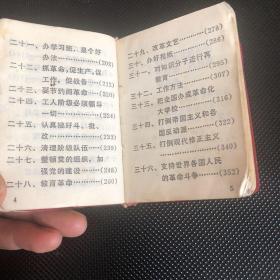 二十一、办学习班，是个好
办法……(202)
二十二、抓革命，促生产，促
工作，促战备……(212)
二十三、要节约闹革命……(222)
二十四、工人阶级必须领导
一切……
二十五、认真搞好斗、批、
改……
二十六、清理阶级队伍……
二十七、整顿党的组织，加
强党的建设……(246)
二十八、教育革命……(260)
4
二十九、改革文艺……(278)
三十、办好报纸……
三十一、对知识分子进行再
教育……
三十二、工作方法……(307)
三十三、把全国办成革命化
大学校……(316)
三十四、打倒帝国主义和各
国反动派……(322)
三十五、打倒现代修正主义
……(340)
三十六、支持世界各国人民
的革命斗争……(352)
5